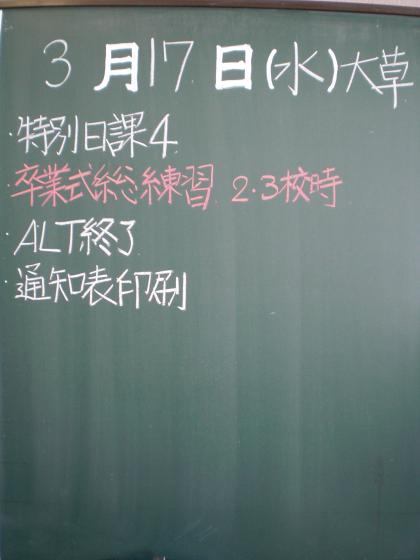 3月17日(水)大草
・特別日課4
・卒業式総練習 2・3校時
・ALT終了
・通知表印刷